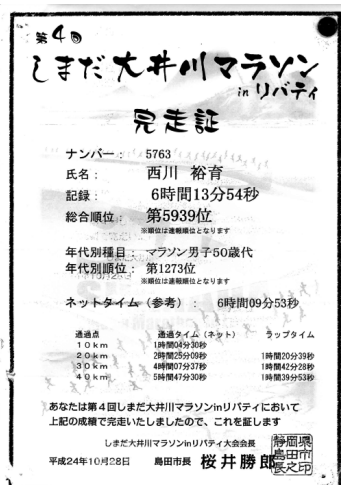 第4回
しまだ大井川マラソン
inリバティ
完走証
ナンバー： 5763
氏名： 西川 裕育
記録： 6時間13分54秒
総合順位： 第5939位
※順位は速報順位となります
年代別種目： マラソン男子50歳代
年代別順位： 第1273位
※順位は速報順位となります
ネットタイム（参考）： 6時間09分53秒
通過点 通過タイム（ネット） ラップタイム
10km 1時間04分30秒
20km 2時間25分09秒 1時間20分39秒
30km 4時間07分37秒 1時間42分28秒
40km 5時間47分30秒 1時間39分53秒
あなたは第4回しまだ大井川マラソンinリバティにおいて
上記の成績で完走いたしましたので、これを証します
しまだ大井川マラソンinリバティ大会会長
平成24年10月28日 島田市長 桜井勝郎
静岡県島田市長之印